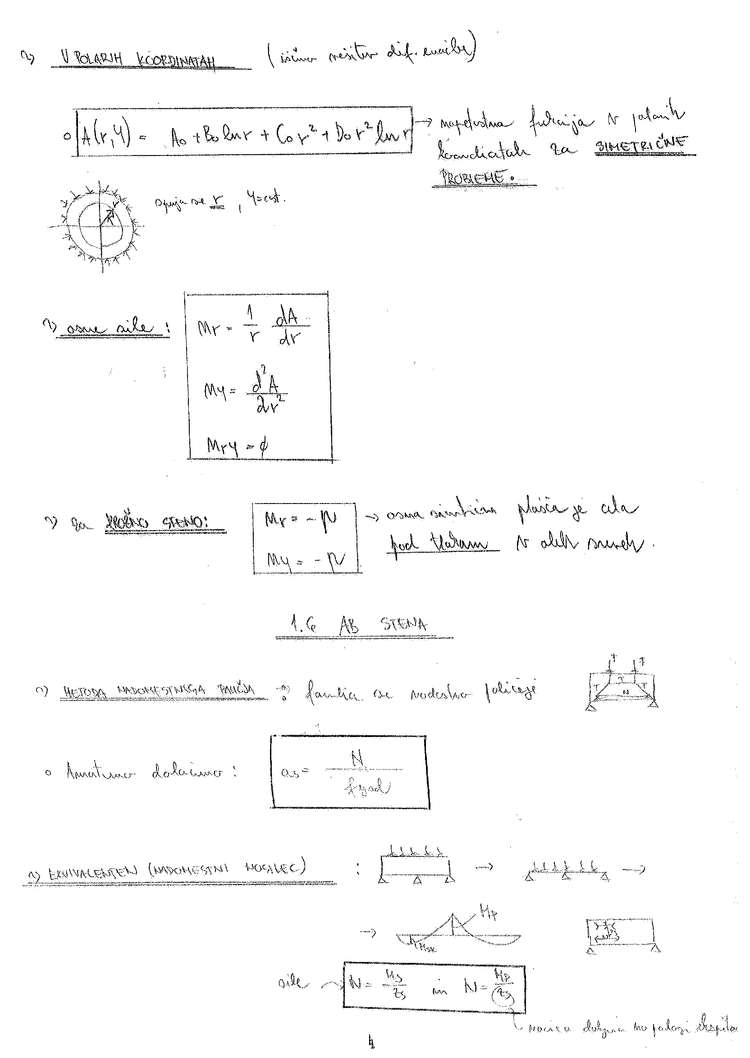 V POLARIH KOORDINATAH (iščemo rešitev dif. enačbe)
A(r,φ) = A₀ + B₀ ln r + C₀ r² + D₀ r² ln r → napetostna funkcija v polarnih
koordinatah za SIMETRIČNE
PROBLEME.
r
spreminja se r, φ=const.
osne sile :
Mr = 1/r dA/dr
Mφ = d²A/dr²
Mrφ = ∅
Za KROŽNO STENO:
Mr = -p → osna simetrična plošča je cela
pod tlakom v obeh smereh.
Mφ = -p
1.6 AB STENA
METODA NADOMESTNEGA PALIČJA :
F F
T T T
N
Armaturo določimo :
as = N / fyd
EKVIVALENTEN (NADOMESTNI NOSILEC) :
→ →
→ Mp
sile N = Ms/zs in N = Mp/zs
ročica
4